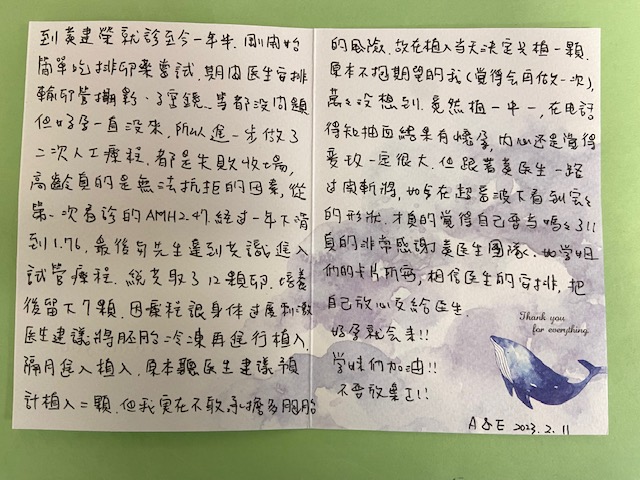 到黃建榮就診至今一年半.剛開始
簡單吃排卵藥嘗試.期間医生安排
輸卵管攝影、子宮鏡..等都沒問題
但好孕一直沒來,所以進一步做了
二次人工療程.都是失敗收場,
高齡真的是無法抗拒的因素,從
第一次看診的AMH2.47經过一年下滑
到1.76.最後与先生達到共識進入
試管療程.總共取了12顆卵.培養
後留下7顆.因療程讓身体过度刺激
医生建議將胚胎冷凍再進行植入.
隔月進入植入.原本聽医生建議預
計植入二顆.但我实在不敢承擔多胞胎
的風險.故在植入当天決定只植一顆.
原本不抱期望的我(覺得会再做一次),
萬萬沒想到.竟然植一中一,在电話
得知抽血結果有懷孕,内心还是覺得
變攻一定很大.但跟著黃医生一路
过関斬將,如今在超音波下看到宝宝
的形狀.才真的覺得自己要当媽媽了!!
真的非常感謝黃医生團隊.如学姐
們的卡片所寫,相信医生的安排,把
自己放心交給医生
好孕就会來!!
学妹們加油!!
不要放棄!!
Thank you
for everything.
A & E 2023.2.11